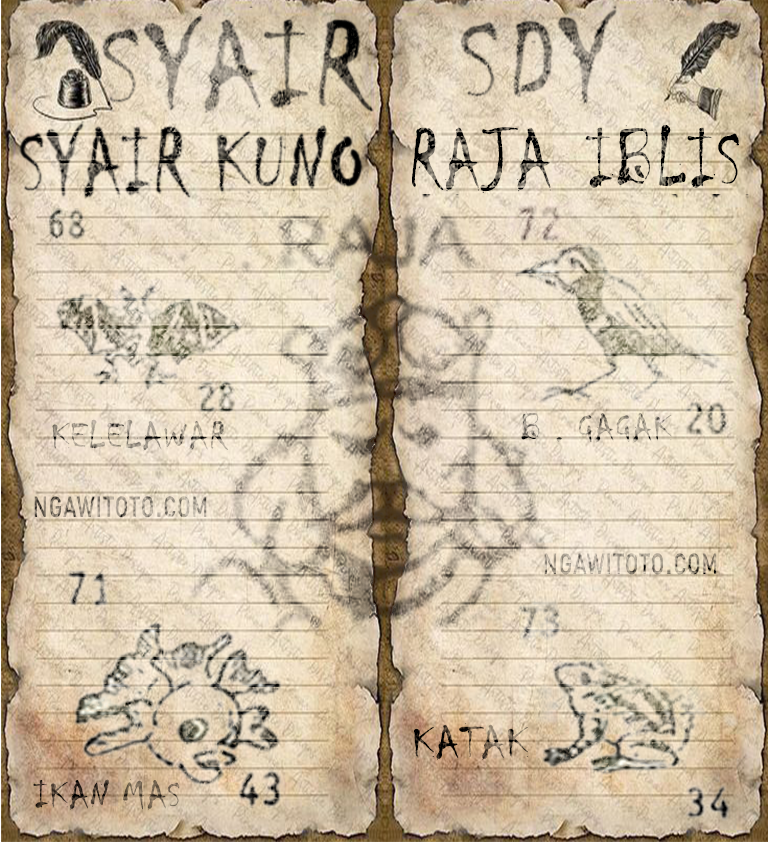 SYAIR SDY
SYAIR KUNO RAJA IBLIS
68
28
KELELAWAR
72
B . GAGAK 20
RAJA
NGAWITOTO.COM
NGAWITOTO.COM
71
IKAN MAS 43
73
KATAK
34